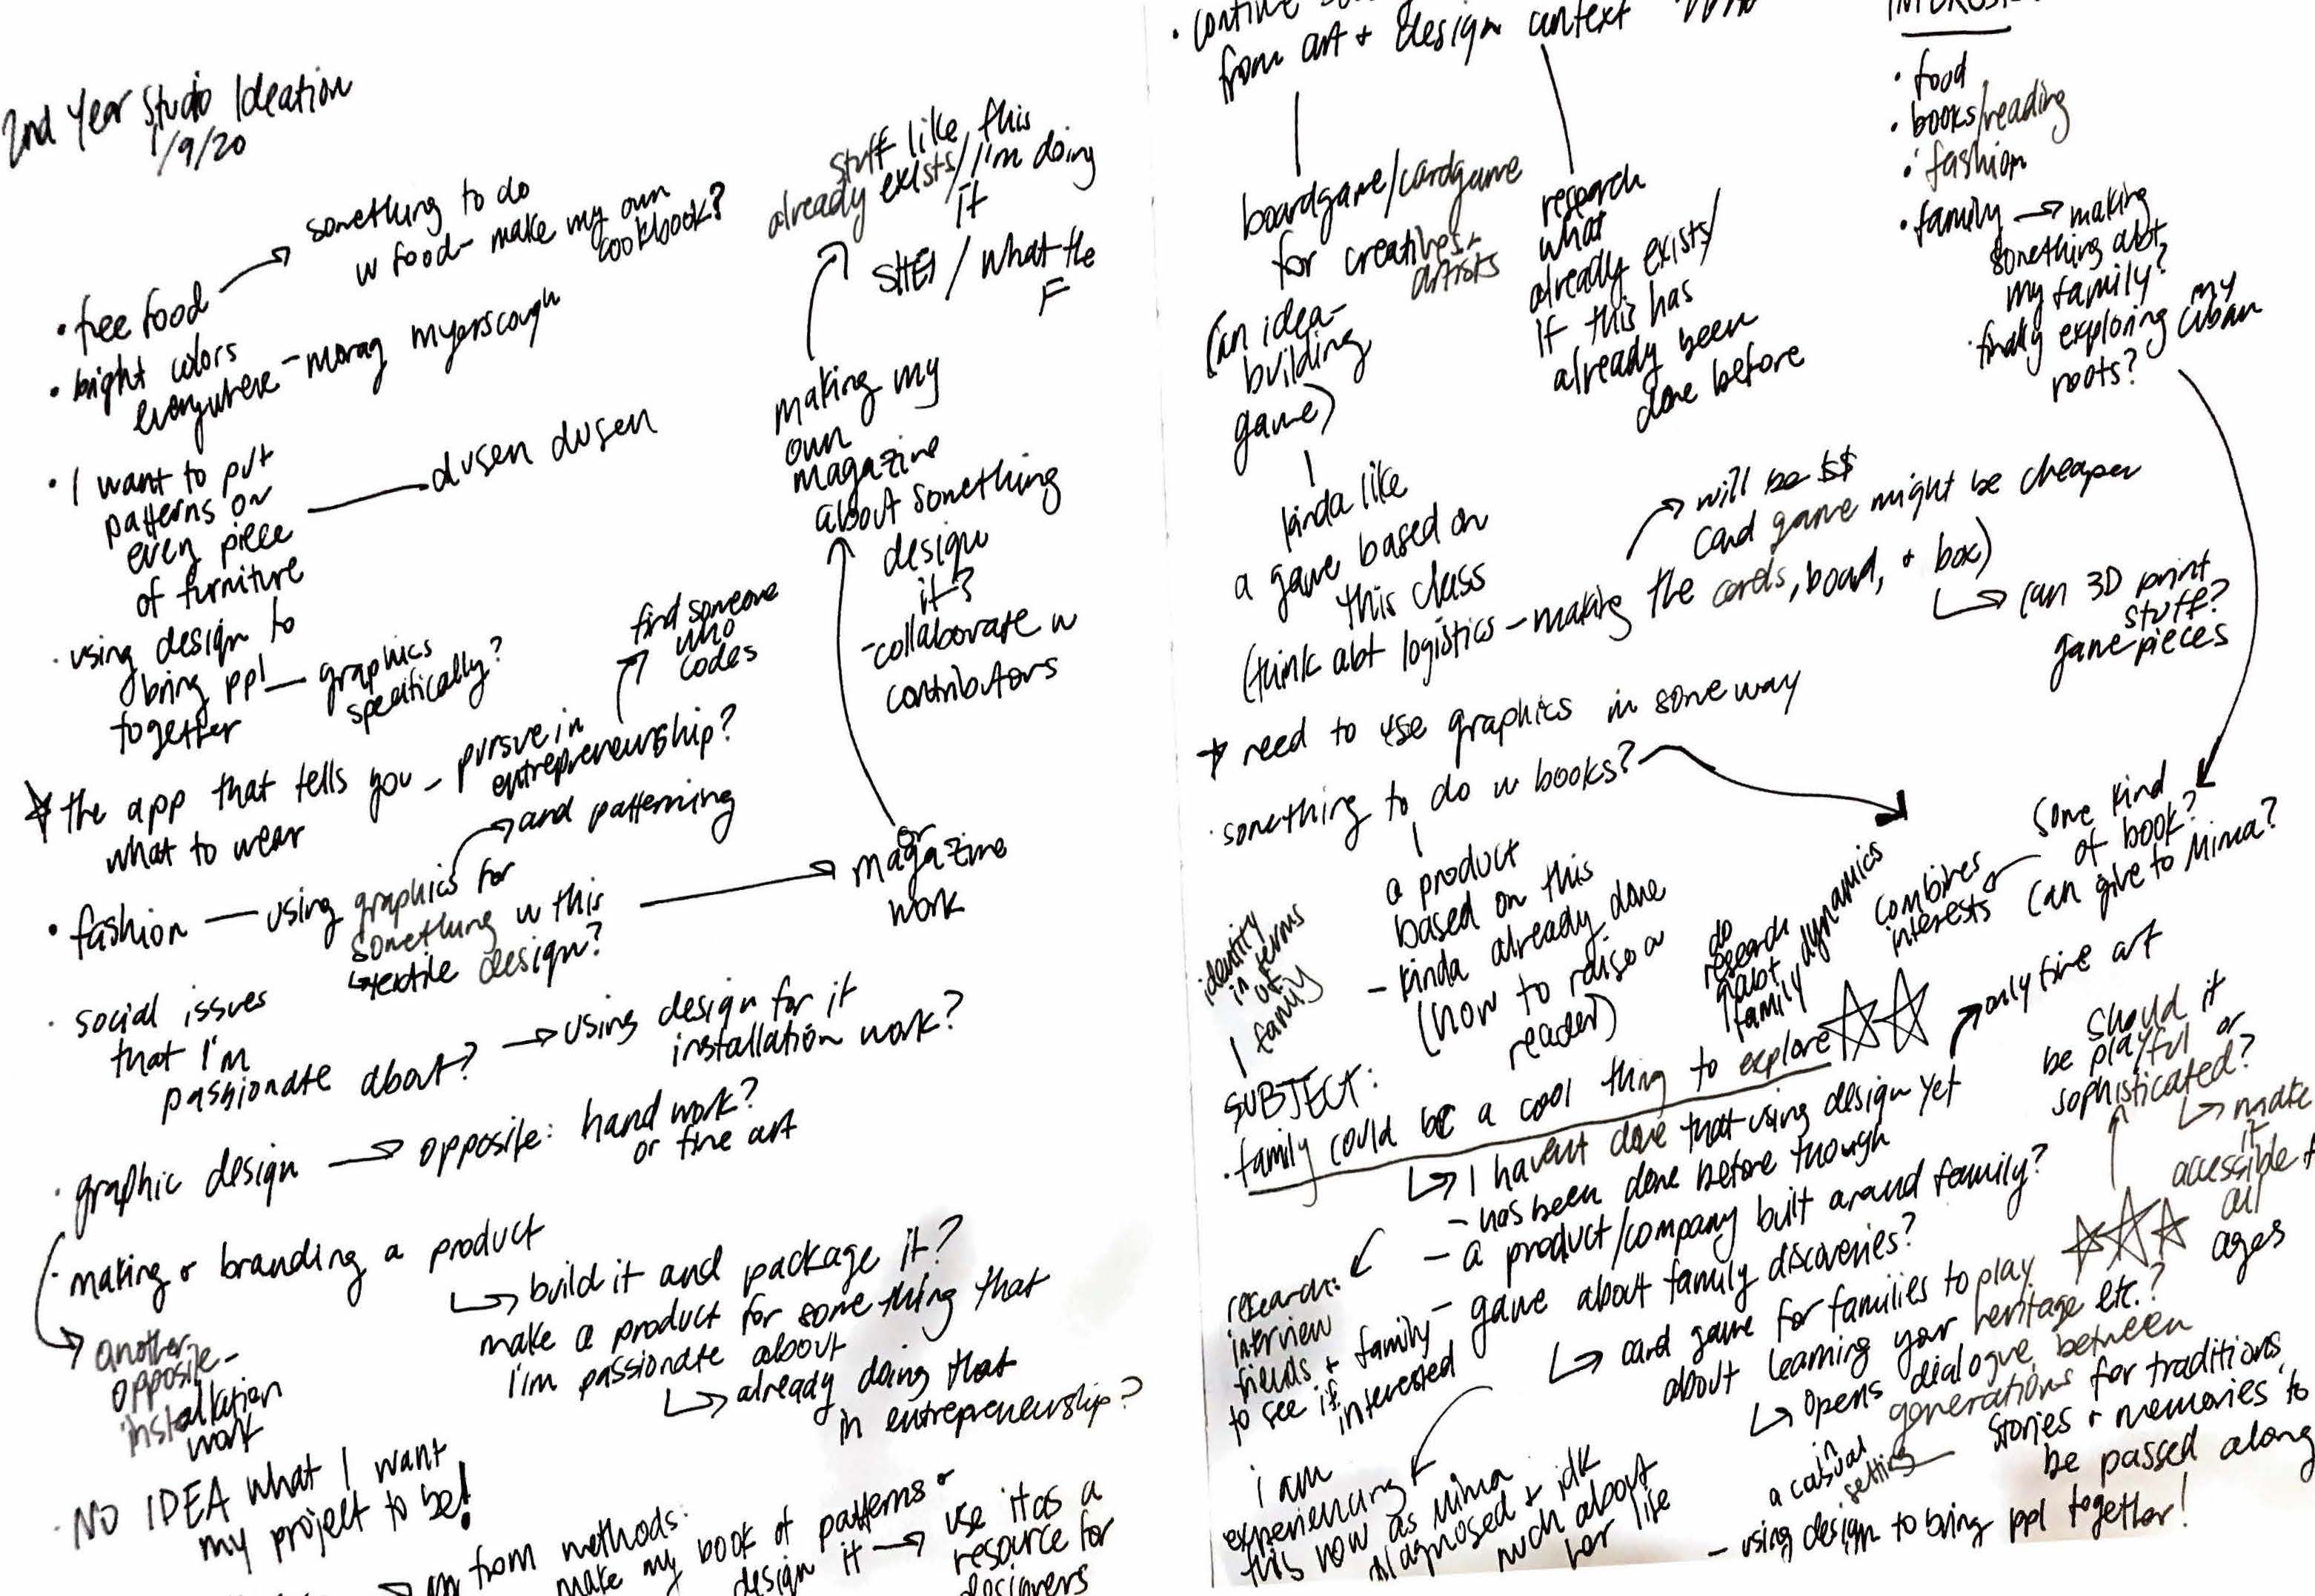 2nd Year Studio Ideation
1/9/20
• free food
something to do
w food - make my own
cookbook?
• bright colors
everywhere - morag myerscough
• I want to put
patterns on
every piece
of furniture
dusen dusen
• using design to
bring ppl
together
graphics
specifically?
the app that tells you -
what to wear
pursue in
entrepreneurship?
find someone
who
codes
• fashion — using graphics for
something w this
and patterning
↳ textile design?
or
magazine
work
making my
own
magazine
about something
design
it?
- collaborate w
contributors
stuff like this
already exists/I'm doing
it
SHEI / What the
F
• social issues
that I'm
passionate about?
using design for it
installation work?
• graphic design → opposite: hand work?
or fine art
• making & branding a product
↳ build it and package it?
make a product for something that
I'm passionate about
↳ already doing that
in entrepreneurship?
another
opposite -
installation
work
• NO IDEA what I want
my project to be!
from methods:
make my book of patterns &
design it → use it as a
resource for
designers
from art + design context
boardgame/cardgame
for creatives +
artists
(an idea-
building
game)
research
what
already exists/
if this has
already been
done before
kinda like
a game based on
this class
(think abt logistics - making the cards, board, + box)
will be $$
card game might be cheaper
↳ can 3D print
stuff?
game pieces
INTERESTS
• food
• books/reading
• fashion
• family → making
something abt
my family?
• finally exploring my
cuban
roots?
need to use graphics in some way
• something to do w books?
a product
based on this
- kinda already done
(how to raise a
reader)
some kind
of book?
can give to Mima?
combines
interests
do
research
abt
family dynamics
identity
in terms
of
family
SUBJECT:
• family could be a cool thing to explore
only fine art
↳ I havent done that using design yet
- has been done before though
- a product/company built around family?
- game about family discoveries?
↳ card game for families to play
about learning your heritage etc.?
↳ opens dialogue between
generations for traditions
stories & memories to
be passed along
in
a casual
setting
- using design to bring ppl together!
should it
be playful or
sophisticated?
↳ make
it
accessible to
all
ages
research:
interview
friends + family
to see if
interested
i am
experiencing
this now as mima
diagnosed + idk
much about
her life